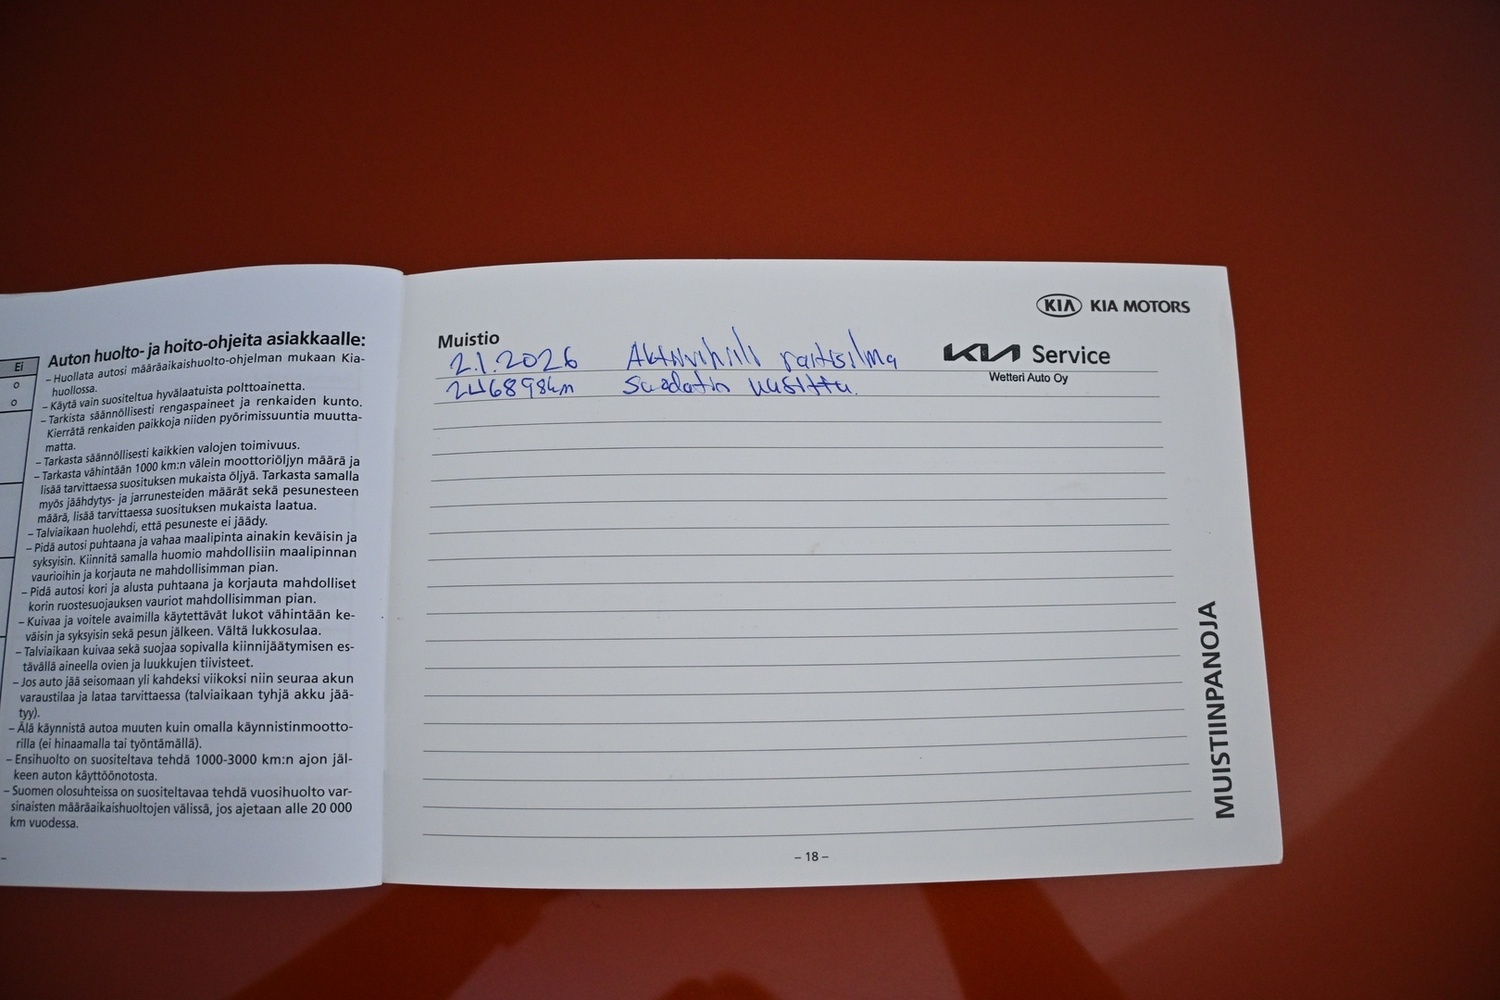 Ei
o
o
Auton huolto- ja hoito-ohjeita asiakkaalle:
– Huollata autosi määräaikaishuolto-ohjelman mukaan Kia-
huollossa.
– Käytä vain suositeltua hyvälaatuista polttoainetta.
– Tarkista säännöllisesti rengaspaineet ja renkaiden kunto.
Kierrätä renkaiden paikkoja niiden pyörimissuuntia muutta-
matta.
– Tarkasta säännöllisesti kaikkien valojen toimivuus.
– Tarkasta vähintään 1000 km:n välein moottoriöljyn määrä ja
lisää tarvittaessa suosituksen mukaista öljyä. Tarkasta samalla
myös jäähdytys- ja jarrunesteiden määrät sekä pesunesteen
määrä, lisää tarvittaessa suosituksen mukaista laatua.
– Talviaikaan huolehdi, että pesuneste ei jäädy.
– Pidä autosi puhtaana ja vahaa maalipinta ainakin keväisin ja
syksyisin. Kiinnitä samalla huomio mahdollisiin maalipinnan
vaurioihin ja korjauta ne mahdollisimman pian.
– Pidä autosi kori ja alusta puhtaana ja korjauta mahdolliset
korin ruostesuojauksen vauriot mahdollisimman pian.
– Kuivaa ja voitele avaimilla käytettävät lukot vähintään ke-
väisin ja syksyisin sekä pesun jälkeen. Vältä lukkosulaa.
– Talviaikaan kuivaa sekä suojaa sopivalla kiinnijäätymisen es-
tävällä aineella ovien ja luukkujen tiivisteet.
– Jos auto jää seisomaan yli kahdeksi viikoksi niin seuraa akun
varaustilaa ja lataa tarvittaessa (talviaikaan tyhjä akku jää-
tyy).
– Älä käynnistä autoa muuten kuin omalla käynnistinmootto-
rilla (ei hinaamalla tai työntämällä).
– Ensihuolto on suositeltava tehdä 1000-3000 km:n ajon jäl-
keen auton käyttöönotosta.
– Suomen olosuhteissa on suositeltavaa tehdä vuosihuolto var-
sinaisten määräaikaishuoltojen välissä, jos ajetaan alle 20 000
km vuodessa.
KIA KIA MOTORS
Muistio
2.1.2026 Aktiivihiili raitisilma
246898km suodatin uusittu.
KIA Service
Wetteri Auto Oy
MUISTIINPANOJA
– 18 –